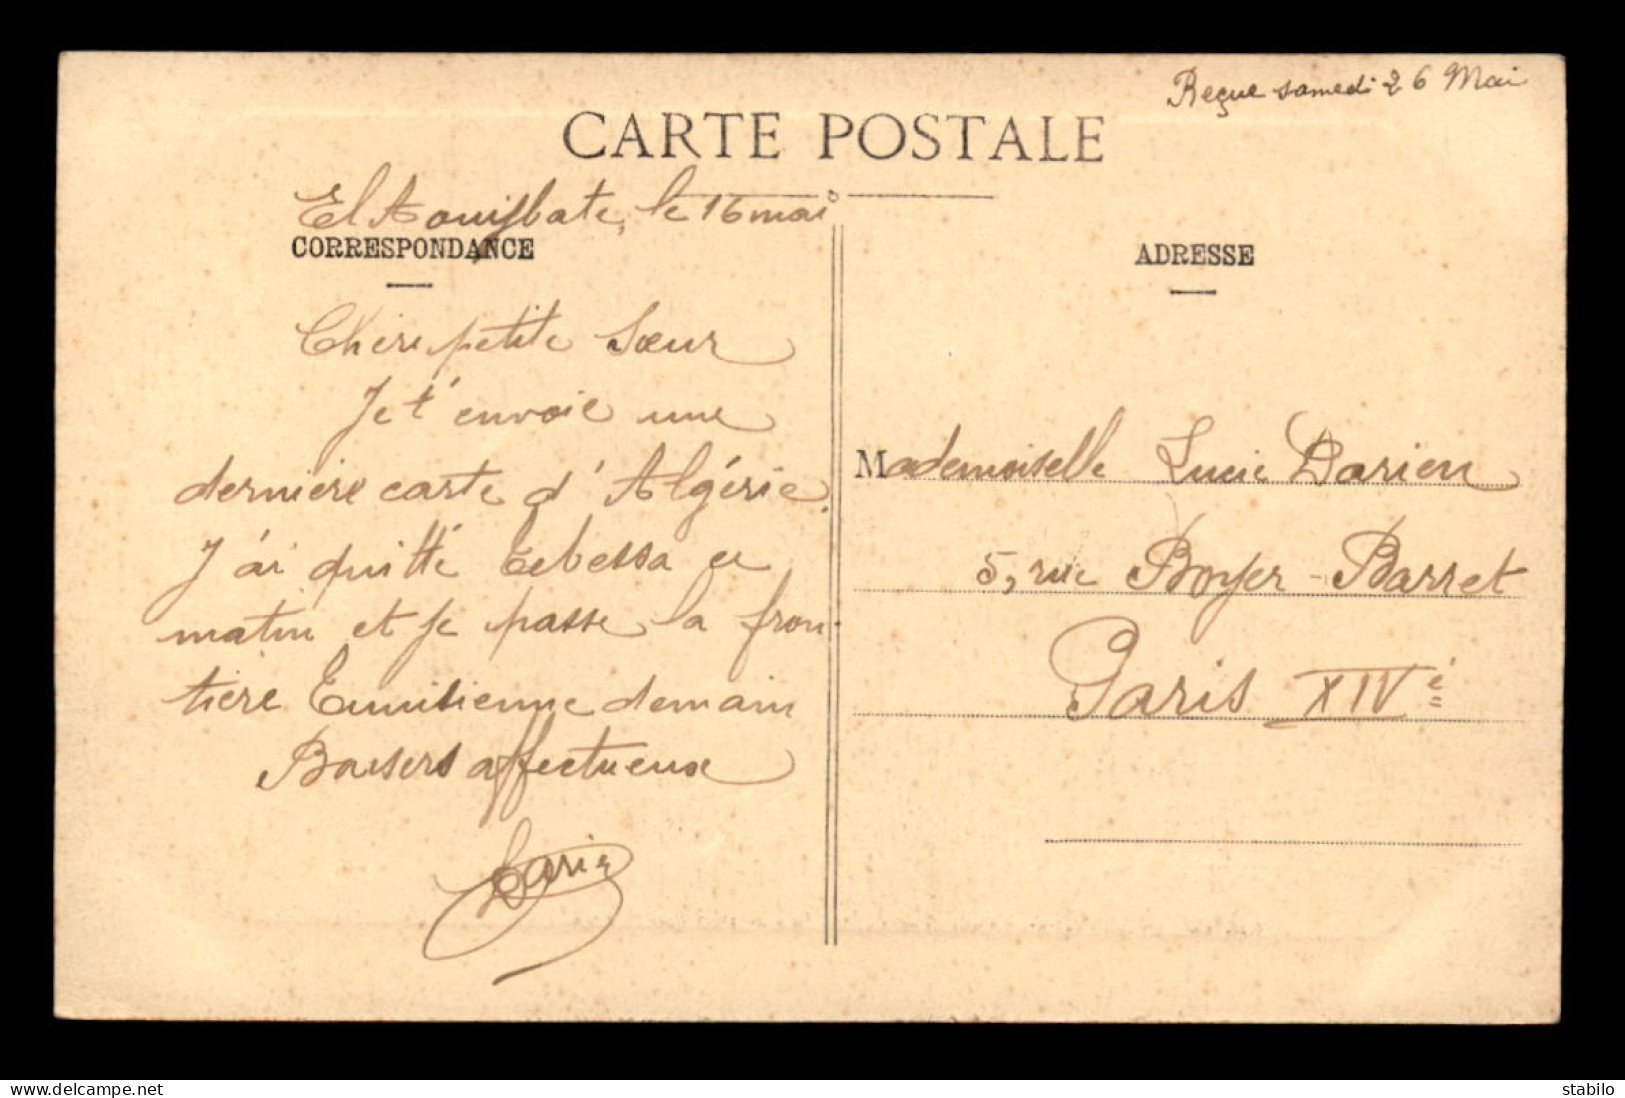 Reçue samedi 26 Mai
CARTE POSTALE
El Aouijbate, le 16 mai
CORRESPONDANCE
Chère petite Sœur
Je t'envoie une
dernière carte d'Algérie.
J'ai quitté Tebessa ce
matin et je passe la fron-
tière Tunisienne demain
Baisers affectueux
ADRESSE
Mademoiselle Lucie Darien
5, rue Boyer-Barret
Paris XIVè
www.delcampe.net
stabilo